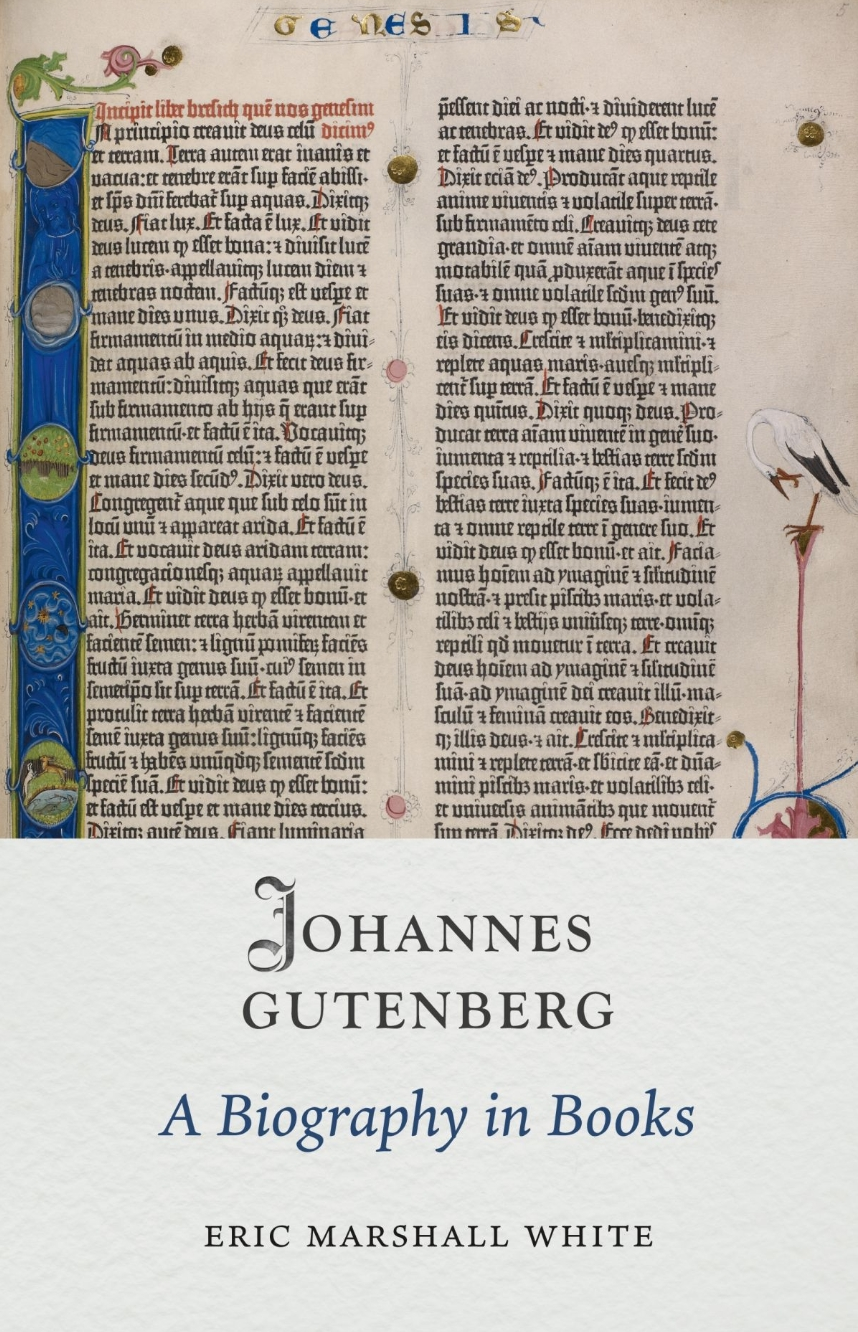 GENESIS
Incipit liber bresith quē nos genesim
In principio creauit deus celū dicimꝰ
et terram. Terra autem erat inanis et
vacua: et tenebre erāt sup faciē abissi·
et sp̄s dn̄i ferebat̄ sup aquas. Dixitqꝫ
deus. Fiat lux. Et facta ē lux. Et vidit
deus lucem ꝙ esset bona: ⁊ diuisit lucē
a tenebris·appellauitqꝫ lucem diem ⁊
tenebras noctem. Factūqꝫ est vespe et
mane dies vnus. Dixit qꝫ deus. Fiat
firmamentū in medio aquaꝝ: ⁊ diui-
dat aquas ab aquis. Et fecit deus fir-
mamentū: diuisitqꝫ aquas que erāt
sub firmamento ab hijs q̄ erant sup
firmamentū·et factū ē ita. Vocauitqꝫ
deus firmamentū celū: ⁊ factū ē vespe
et mane dies secūdꝰ. Dixit vero deus.
Congregent̄ aque que sub celo sūt in
locū vnū ⁊ appareat arida. Et factū ē
ita. Et vocauit deus aridam terram:
congregacionesqꝫ aquaꝝ appellauit
maria. Et vidit deus ꝙ esset bonū·et
ait. Germinet terra herbā virentem et
facientē semen: ⁊ lignū pomiferū faciēs
fructū iuxta genus suū·cuiꝰ semen in
semetipo sit sup terrā. Et factū ē ita. Et
protulit terra herbā virentē ⁊ facientē
semē iuxta genus suū: lignūqꝫ faciēs
fructū ⁊ habēs vnūqdqꝫ sementē scd̄m
speciē suā. Et vidit deus ꝙ esset bonū:
et factū est vespe et mane dies tercius.
Dixitqꝫ autē deus. Fiant luminaria
p̄essent diei ac nocti·⁊ diuiderent lucē
ac tenebras. Et vidit deꝰ ꝙ esset bonū:
et factū ē vespe ⁊ mane dies quartus.
Dixit eciā deꝰ. Producāt aque reptile
anime viuentis ⁊ volatile super terrā·
sub firmamēto celi. Creauitqꝫ deus cete
grandia·et omnē aīam viuentē atqꝫ
motabilē quā ꝓduxerāt aque ī species
suas·⁊ omne volatile scd̄m genꝰ suū.
Et vidit deus ꝙ esset bonū·benedixitqꝫ
eis dicens. Crescite ⁊ m̄ltiplicamini·⁊
replete aquas maris·auesqꝫ m̄ltipli-
cent̄ sup terrā. Et factū ē vespe ⁊ mane
dies quītus. Dixit quoqꝫ deus. Pro-
ducat terra aīam viuentē in genē suo·
iumenta ⁊ reptilia·⁊ bestias terre scd̄m
species suas. Factūqꝫ ē ita. Et fecit deꝰ
bestias terre iuxta species suas·iumen-
ta ⁊ omne reptile terre ī genere suo. Et
vidit deus ꝙ esset bonū·et ait. Facia-
mus hoīem ad ymaginē ⁊ similitudinē
nostrā·⁊ presit piscibꝫ maris·et vola-
tilibꝫ celi ⁊ bestijs vniūseqꝫ terre·omīqꝫ
reptili qd̄ mouetur ī terra. Et creauit
deus hoīem ad ymaginē ⁊ similitudinē
suā·ad ymaginē dei creauit illū·ma-
sculū ⁊ feminā creauit eos. Benedixit-
qꝫ illis deus·⁊ ait. Crescite ⁊ m̄ltiplica-
mini ⁊ replete terrā·et sbicite eā·et dn̄a-
mini piscibꝫ maris·et volatilibꝫ celi·
et vniuersis animātibꝫ que mouent̄
sup terrā. Dixitqꝫ deꝰ. Ecce dedi vobis
JOHANNES
GUTENBERG
A Biography in Books
ERIC MARSHALL WHITE